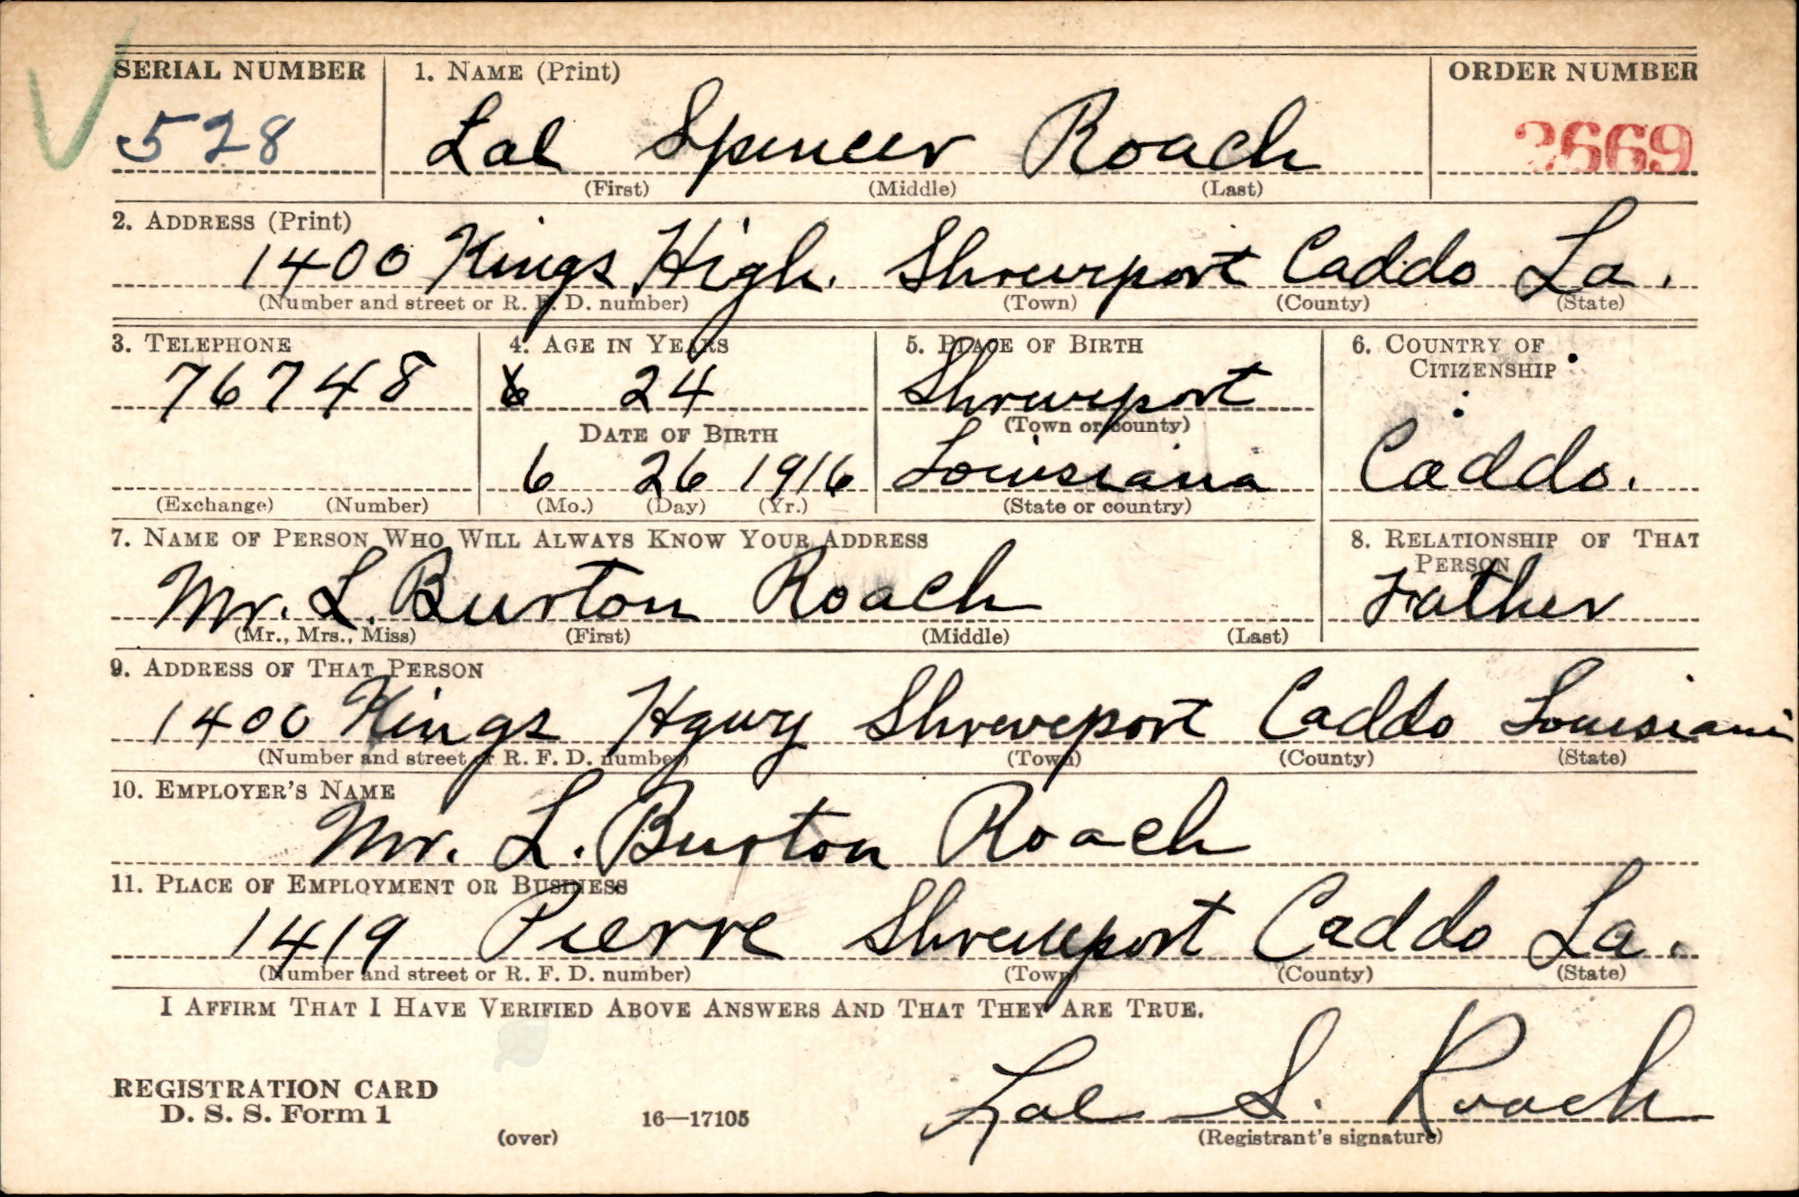 SERIAL NUMBER 1. NAME (Print) ORDER NUMBER
528 Lal Spencer Roach 2669
(First) (Middle) (Last)
2. ADDRESS (Print)
1400 Kings High. Shreveport Caddo La.
(Number and street or R. F. D. number) (Town) (County) (State)
3. TELEPHONE 4. AGE IN YEARS 5. PLACE OF BIRTH 6. COUNTRY OF
CITIZENSHIP
76748 24 Shreveport
(Town or county)
DATE OF BIRTH
6 26 1916 Louisiana Caddo.
(Exchange) (Number) (Mo.) (Day) (Yr.) (State or country)
7. NAME OF PERSON WHO WILL ALWAYS KNOW YOUR ADDRESS 8. RELATIONSHIP OF THAT
PERSON
Mr. L. Burton Roach Father
(Mr., Mrs., Miss) (First) (Middle) (Last)
9. ADDRESS OF THAT PERSON
1400 Kings Hgwy Shreveport Caddo Louisiana
(Number and street or R. F. D. number) (Town) (County) (State)
10. EMPLOYER'S NAME
Mr. L. Burton Roach
11. PLACE OF EMPLOYMENT OR BUSINESS
1419 Pierre Shreveport Caddo La.
(Number and street or R. F. D. number) (Town) (County) (State)
I AFFIRM THAT I HAVE VERIFIED ABOVE ANSWERS AND THAT THEY ARE TRUE.
REGISTRATION CARD
D. S. S. Form 1 16—17105 Lal S. Roach
(over) (Registrant's signature)